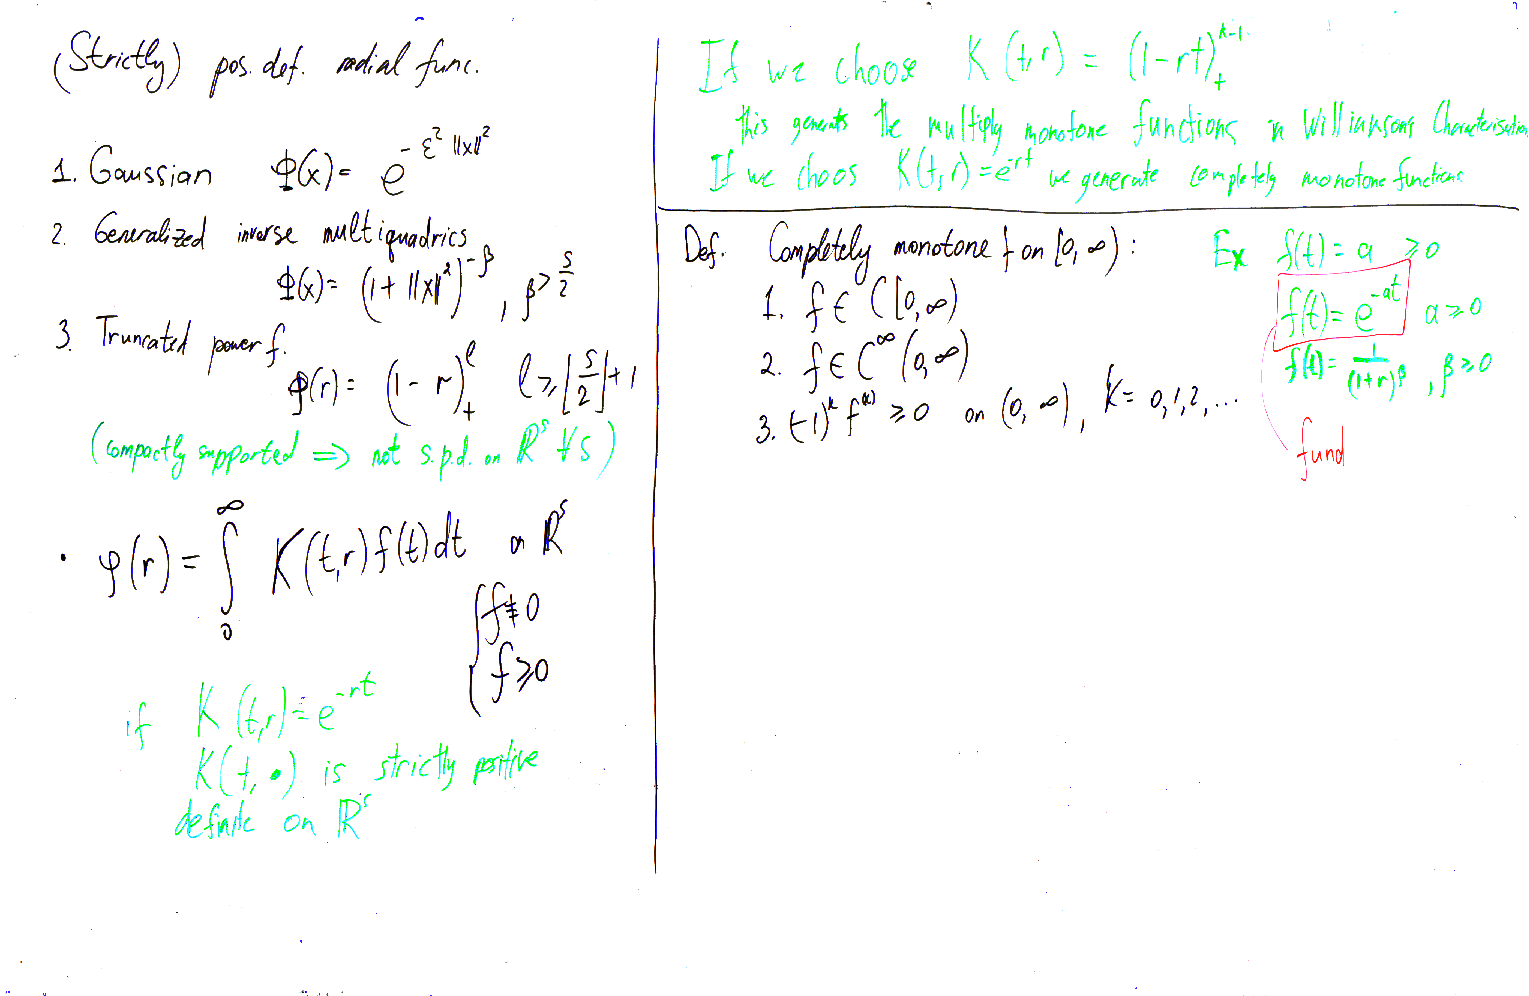 (Strictly) pos. def. radial func.
1. Gaussian Φ(x) = e^{-ε² ||x||²}
2. Generalized inverse multiquadrics
Φ(x) = (1 + ||x||²)^{-β}, β > s/2
3. Truncated power f.
φ(r) = (1 - r)_+^ℓ ℓ ≥ ⌊s/2⌋ + 1
(compactly supported ⟹ not s.p.d. on ℝ^s ∀s)
• φ(r) = ∫_0^∞ K(t,r) f(t) dt on ℝ^s
{ f ≢ 0
f ≥ 0
if K(t,r) = e^{-rt}
K(t, •) is strictly positive
definite on ℝ^s
If we choose K(t,r) = (1-rt)_+^{k-1}
this generats the multiply monotone functions in Williamson's Characterisation
If we choos K(t,r) = e^{-rt} we generate completely monotone functions
Def. Completely monotone f on [0, ∞):
1. f ∈ C[0, ∞)
2. f ∈ C^∞(0, ∞)
3. (-1)^k f^{(k)} ≥ 0 on (0, ∞), k = 0,1,2, ...
Ex f(t) = a ≥ 0
f(t) = e^{-at} a ≥ 0
f(t) = 1/(1+r)^β, β ≥ 0
fund